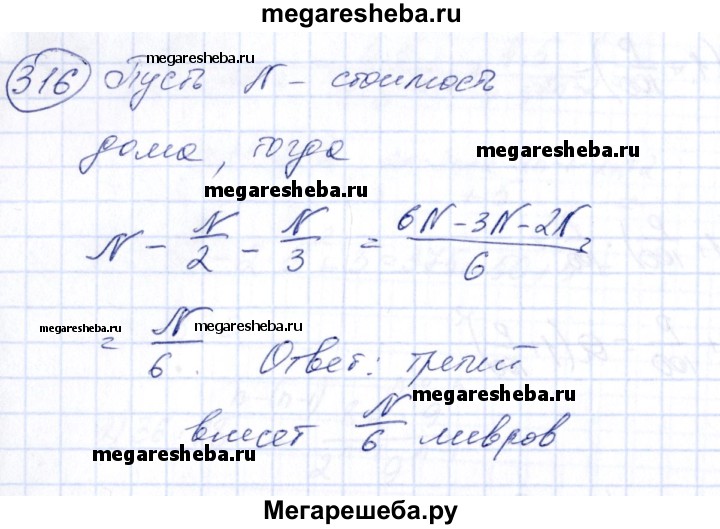 megaresheba.ru
316 Пусть N – стоимость
megaresheba.ru
дома, тогда
megaresheba.ru
megaresheba.ru
N - N/2 - N/3 = (6N-3N-2N)/6 =
megaresheba.ru
megaresheba.ru
= N/6. Ответ: третий
megaresheba.ru
внесет N/6 ливров
megaresheba.ru
Мегарешеба.ру